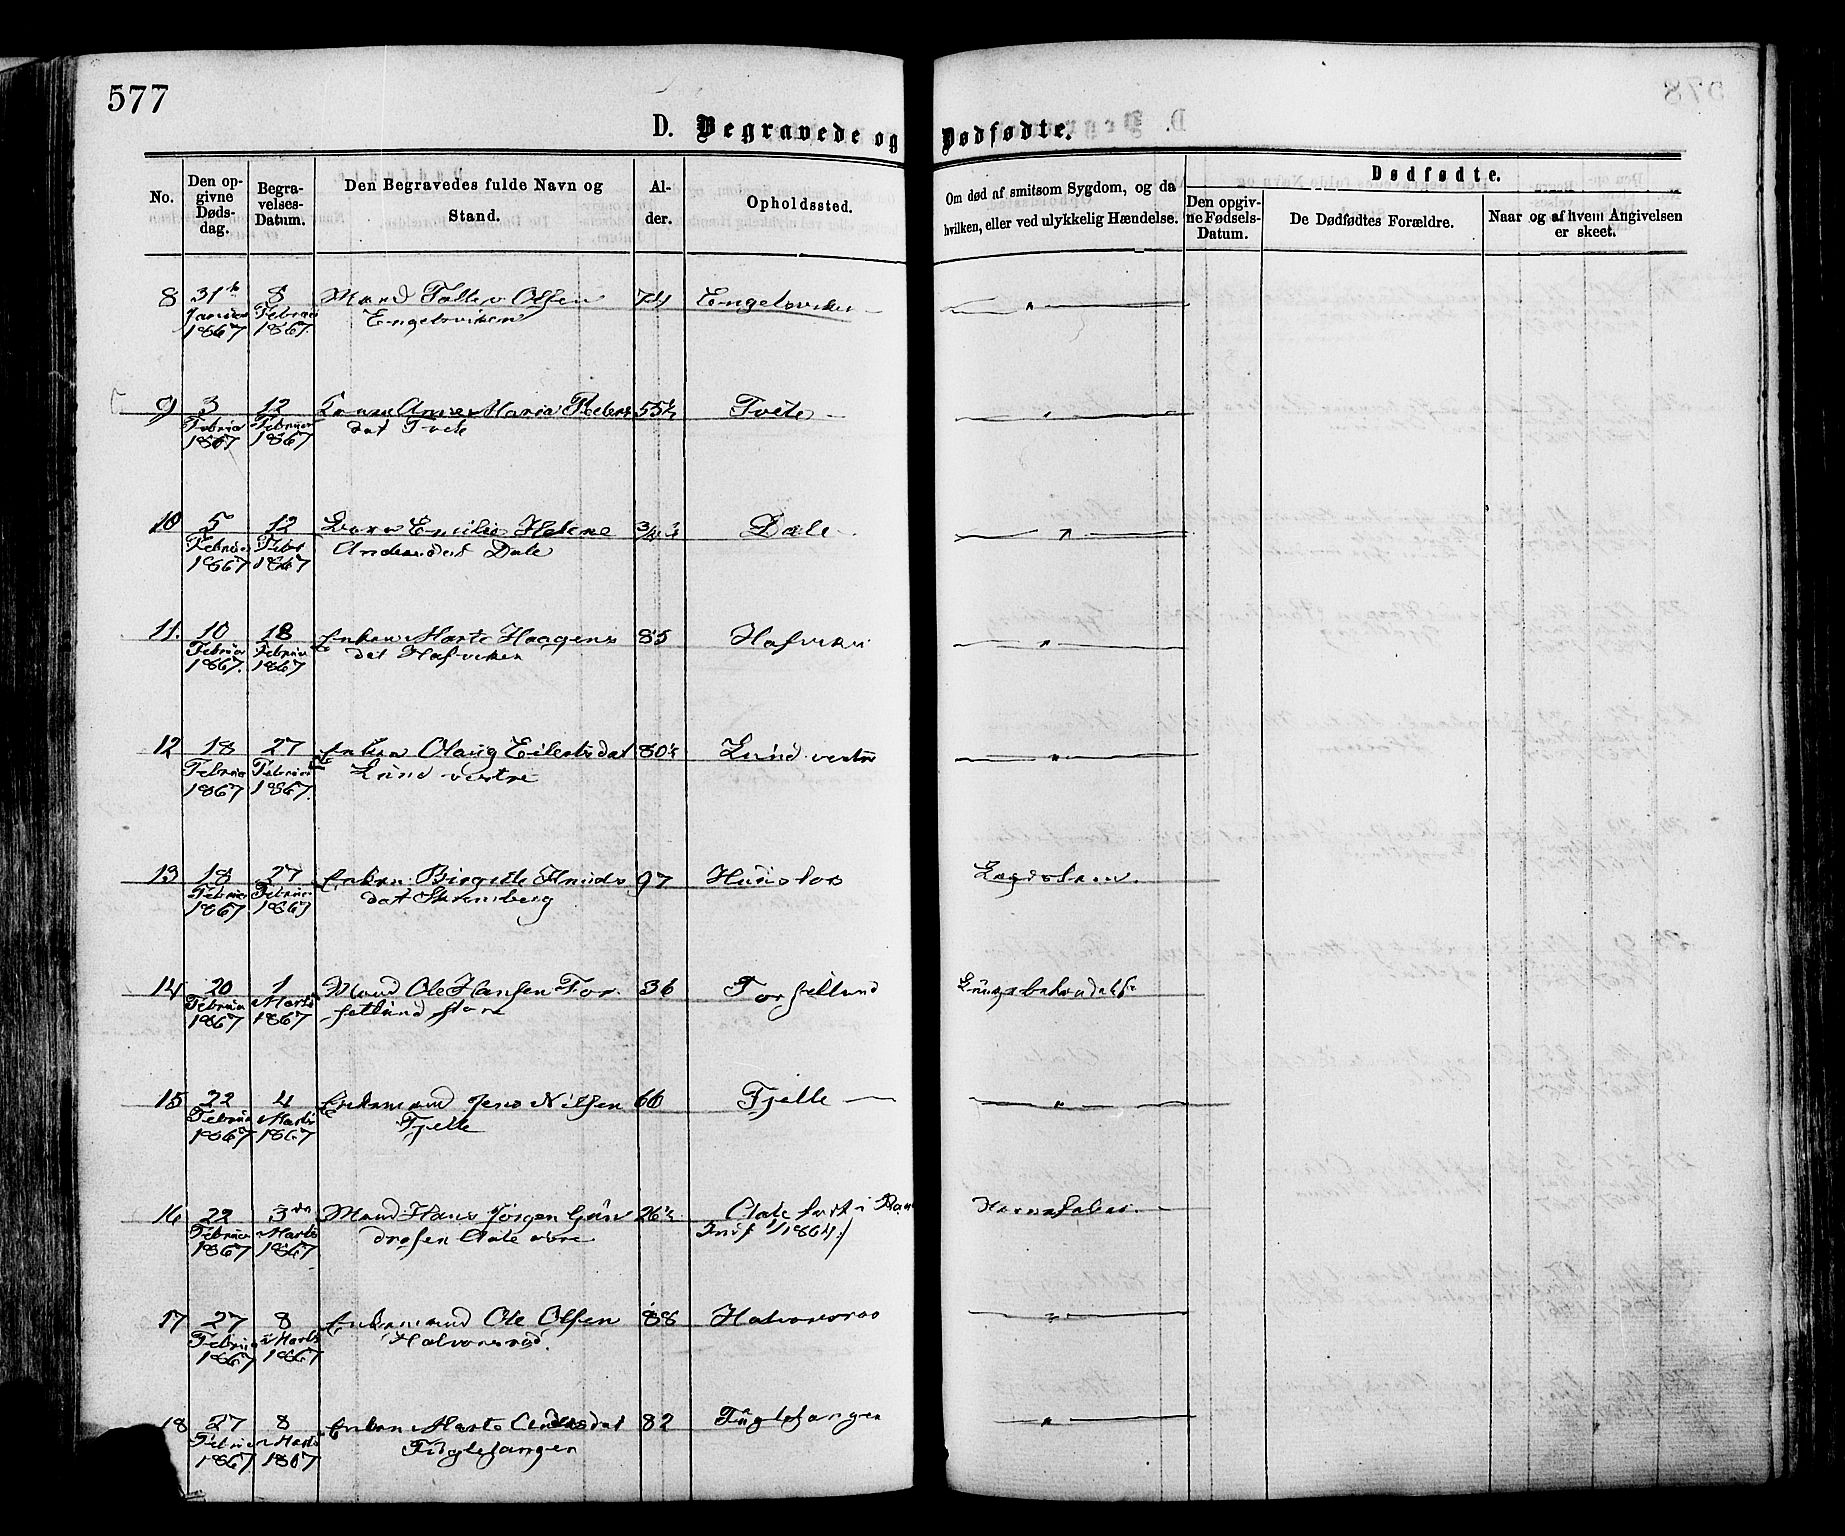 577
D. Begravede og Dødfødte.
No.
Den opgivne Dødsdag.
Begravelses-Datum.
Den Begravedes fulde Navn og Stand.
Alder.
Opholdssted.
Om død af smitsom Sygdom, og da hvilken, eller ved ulykkelig Hændelse.
Dødfødte.
Den opgivne Fødsels-Datum.
De Dødfødtes Forældre.
Naar og af hvem Angivelsen er skeet.
8 31te 8 Mand Tollev Olsen 74 Engelsviken
Januar Februar Engelsviken
1867 1867
9 3 12 Anne Maria Peders 55½ Tvete
Februar Februar dat Tvete
1867 1867
10 5 12 Barn Emilie Helene 3/4 Dale
Februar Febr Andersdat Dale
1867 1867
11. 10 18 Enken Marte Haagens 85 Hafviken
Februar Februar dat Hafviken
1867. 1867
12 18 27 Enken Olaug Eilertsdat 80½ Lund vestre
Februar Februar Lund vestre
1867 1867.
13 18 27 Enken Birgitte Knuds 97 Hunslos
Februar Februar dat
1867 1867
14 20 1 Mand Ole Hansen Tor 36
Februar Marts
1867 1867
15 22 4 Enkemand Jens Nilsen 66 Fjelle
Februar Marts Fjelle
1867 1867
16 22 3die Mand Hans Jørgen Gun 26½
Februar Marts drosen
1867 1867 1864
17 27 8 Enkemand Ole Olsen 88 Halvorsrød
Februar Marts Halvorsrød.
1867 1867
18 27 8 Enken Marte Andersdat 82 Fuglesangen
Februar Marts Fuglesangen
1867 1867